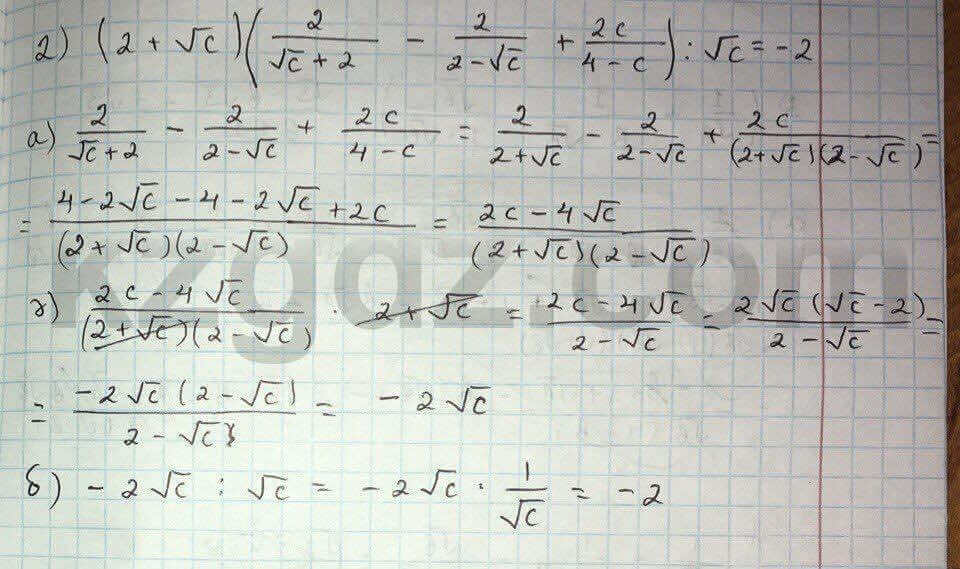 2) (2 + √c)(2/(√c + 2) − 2/(2 − √c) + 2c/(4 − c)) : √c = −2
а) 2/(√c + 2) − 2/(2 − √c) + 2c/(4 − c) = 2/(2 + √c) − 2/(2 − √c) + 2c/((2 + √c)(2 − √c)) =
= (4 − 2√c − 4 − 2√c + 2c)/((2 + √c)(2 − √c)) = (2c − 4√c)/((2 + √c)(2 − √c))
kzgdz.com
г) (2c − 4√c)/((2 + √c)(2 − √c)) · 2 + √c = (2c − 4√c)/(2 − √c) = 2√c(√c − 2)/(2 − √c) =
= −2√c(2 − √c)/(2 − √c) = −2√c
б) −2√c : √c = −2√c · 1/√c = −2